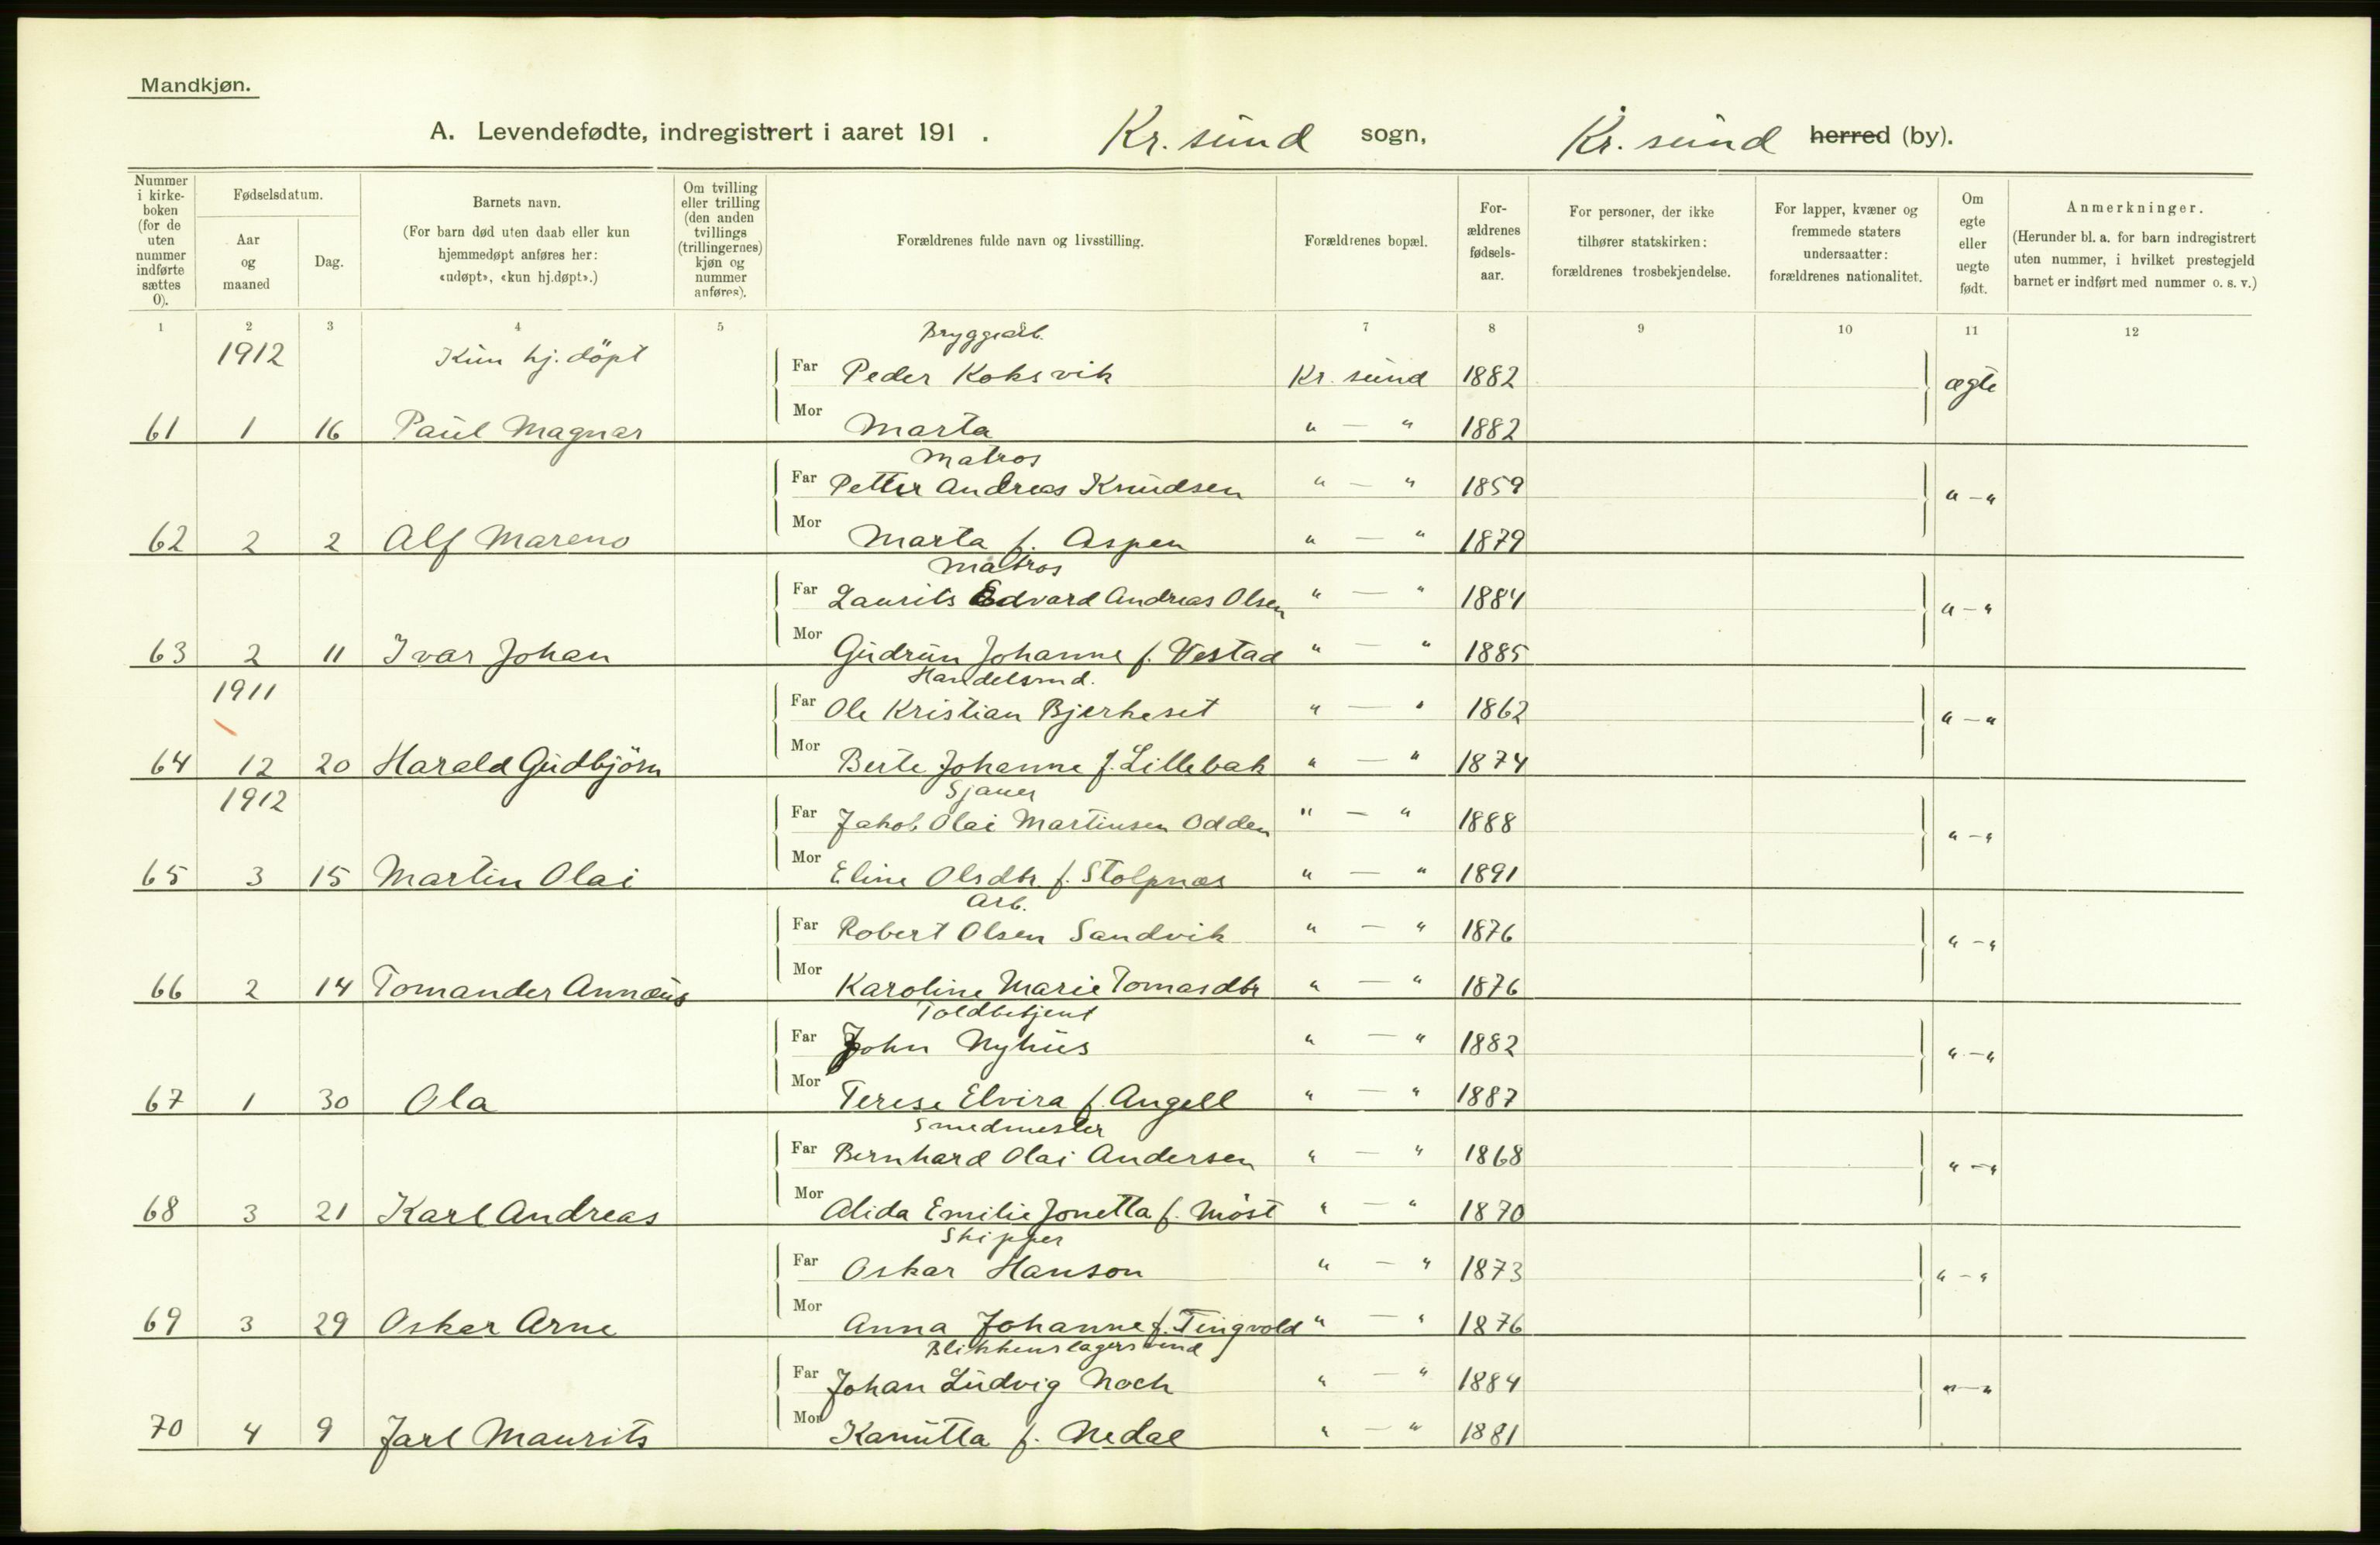 Mandkjøn.
A. Levendefødte, indregistrert i aaret 191 . Kr. sund sogn, Kr. sund herred (by).
Nummer i kirkeboken (for de uten nummer indførte sættes 0).
Fødselsdatum.
Aar og maaned
Dag.
Barnets navn.
(For barn død uten daab eller kun hjemmedøpt anføres her: «udøpt», «kun hj.døpt».)
Om tvilling eller trilling (den anden tvillings (trillingernes) kjøn og nummer anføres).
Forældrenes fulde navn og livsstilling.
Forældrenes bopæl.
Forældrenes fødselsaar.
For personer, der ikke tilhører statskirken: forældrenes trosbekjendelse.
For lapper, kvæner og fremmede staters undersaatter: forældrenes nationalitet.
Om egte eller uegte født.
Anmerkninger.
(Herunder bl. a. for barn indregistrert uten nummer, i hvilket prestegjeld barnet er indført med nummer o. s. v.)
1 2 3 4 5 7 8 9 10 11 12
1912 Kun hj. döpt Bryggearb.
Far Peder Koksvik Kr. sund 1882 ægte
61 1 16 Paul Magnar Mor Marta " — " 1882
Matros
Far Petter Andreas Knudsen " — " 1859 " — "
62 2 2 Alf Mareno Mor Marta f. Aspen " — " 1879
Matros
Far Laurits Edvard Andreas Olsen " — " 1884 " — "
63 2 11 Ivar Johan Mor Gudrun Johanne f. Vestad " — " 1885
1911 Handelsmd.
Far Ole Kristian Bjerkeset " — " 1862 " — "
64 12 20 Harald Gudbjörn Mor Berte Johanne f. Lillebak " — " 1874
1912 Sjauer
Far Jakob Olai Martinsen Odden " — " 1888 " — "
65 3 15 Martin Olai Mor Eline Olsdtr. f. Stolpnæs " — " 1891
Arb.
Far Robert Olsen Sandvik " — " 1876 " — "
66 2 14 Tomander Annæus Mor Karoline Marie Tomasdtr " — " 1876
Toldbetjent
Far John Nyhus " — " 1882 " — "
67 1 30 Ola Mor Terese Elvira f. Angell " — " 1887
Smedmester
Far Bernhard Olai Andersen " — " 1868 " — "
68 3 21 Karl Andreas Mor Alida Emilie Jonetta f. Möst " — " 1870
Skipper
Far Oskar Hanson " — " 1873 " — "
69 3 29 Oskar Arne Mor Anna Johanne f. Tingvold " — " 1876
Blikkenslagersvend
Far Johan Ludvig Noch " — " 1884 " — "
70 4 9 Jarl Maurits Mor Kanutta f. Nedal " — " 1881